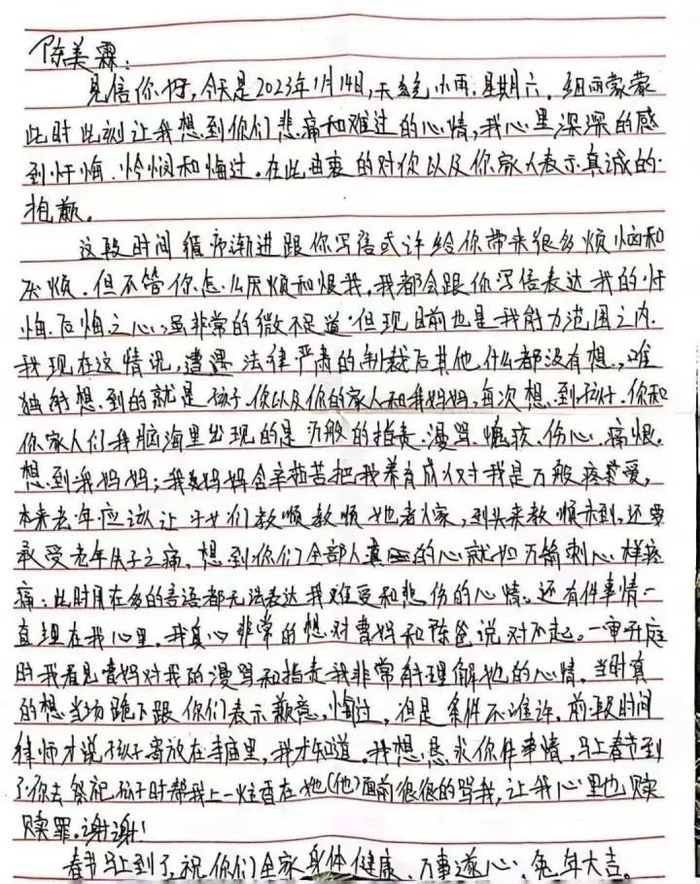 陈美霖:
见信你好,今天是2023年1月14日,天气小雨.星期六.细雨蒙蒙
此时此刻让我想到你们悲痛和难过的心情,我心里深深的感
到忏悔.怜悯和悔过.在此由衷的对你以及你家人表示真诚的
抱歉。
这段时间循序渐进跟你写信或许给你带来很多烦恼和
厌烦.但不管你怎么厌烦和恨我,我都会跟你写信表达我的忏
悔.后悔之心,虽非常的微不足道.但现目前也是我能力范围之内.
我现在这情况,遭遇法律严肃的制裁后其他什么都没有想,唯
独能想到的就是孩子.你以及你的家人和我妈妈,每次想到孩子.你和
你家人们我脑海里出现的是万般的指责.漫骂.愤.伤心.痛恨.
想到我妈妈;我妈妈含辛茹苦把我养育成人对我是万般疼爱,
本来老年应该让子女们教顺教顺她老人家,到头来教顺未到,还要
承受老年失子之痛.想到你们全部人的心就如万箭刺心样疼
痛;此时用在多的言语都无法表达我难受和悲伤的心情。还有件事情一
直埋在我心里.我真心非常的想对曹妈和陈爸说对不起。一审开庭
时我看见曹妈对我的漫骂和指责我非常能理解她的心情.当时真
的想当场跪下跟你们表示歉意.悔过,但是条件不准许.前段时间
律师才说孩子寄放在寺庙里,我才知道.我想恳求你件事情,马上春节到
了.你去祭祀孩子时帮我上一炷香在她(他)面前很很的骂我,让我心里也赎
赎罪.谢谢!
春节马上到了,祝你们全家身体健康.万事遂心.兔年大吉。